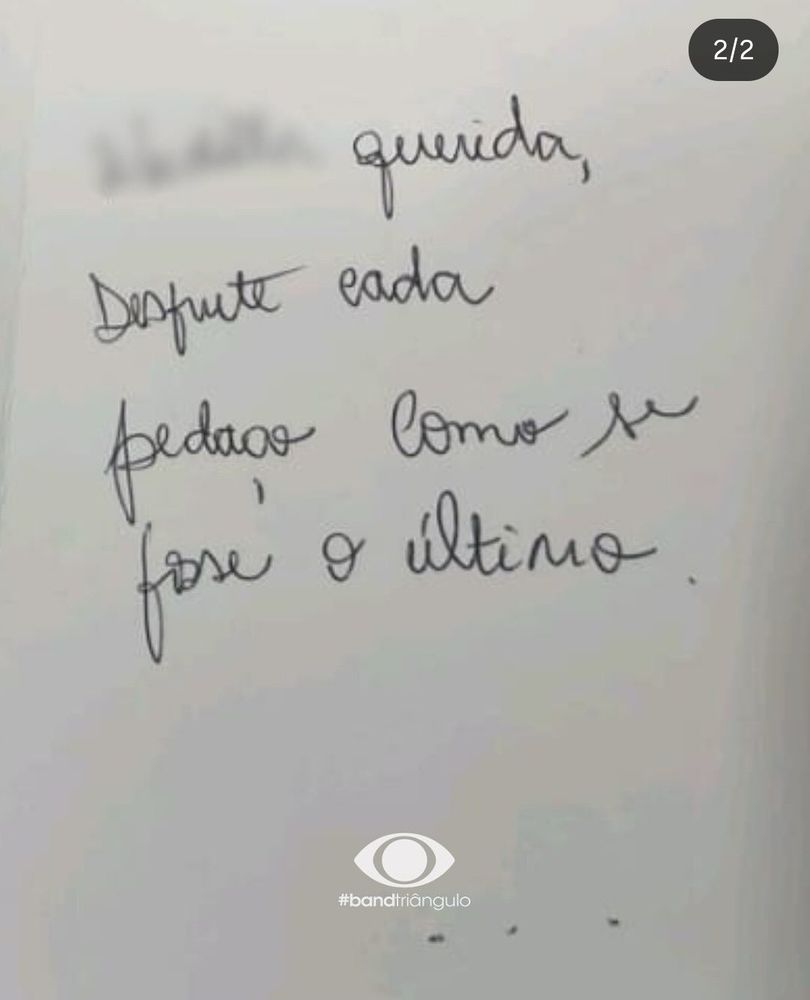 2/2
querida,
Desfrute cada
pedaço como se
fosse o último.
#bandtriângulo